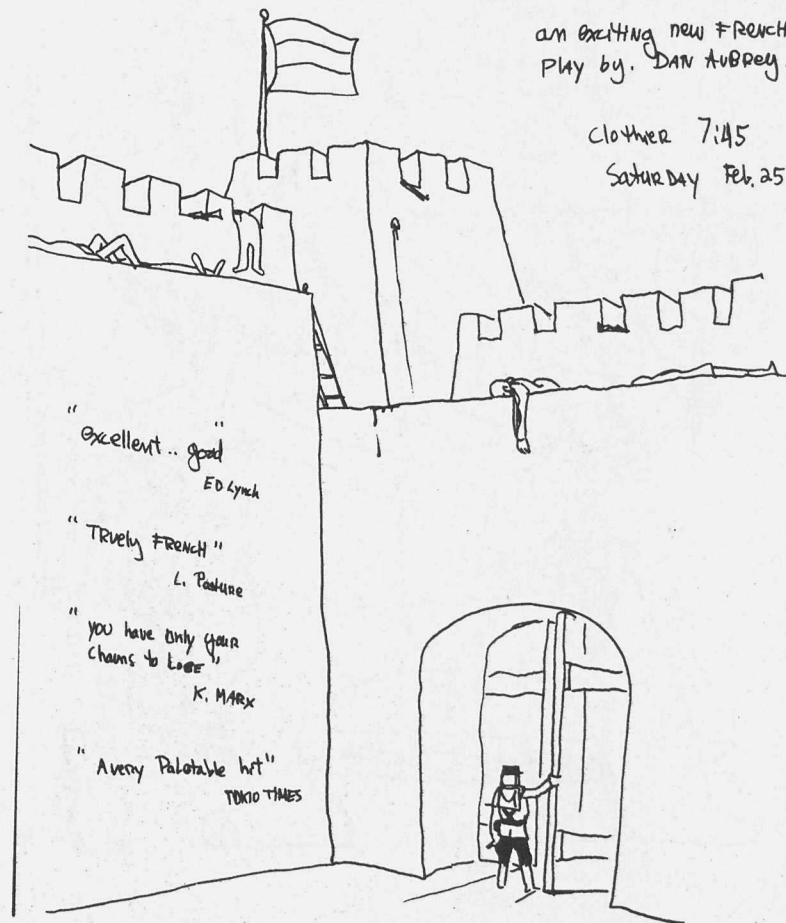 an exciting new FRENCH
PLAY by. DAN AUBREY.
Clothier 7:45
SATURDAY Feb. 25
"excellent.. good"
ED Lynch
"TRuely FRENCH"
L. Pasture
"you have only your
Chains to LOSE"
K. MARX
"A very Palotable hit"
TOKIO TIMES